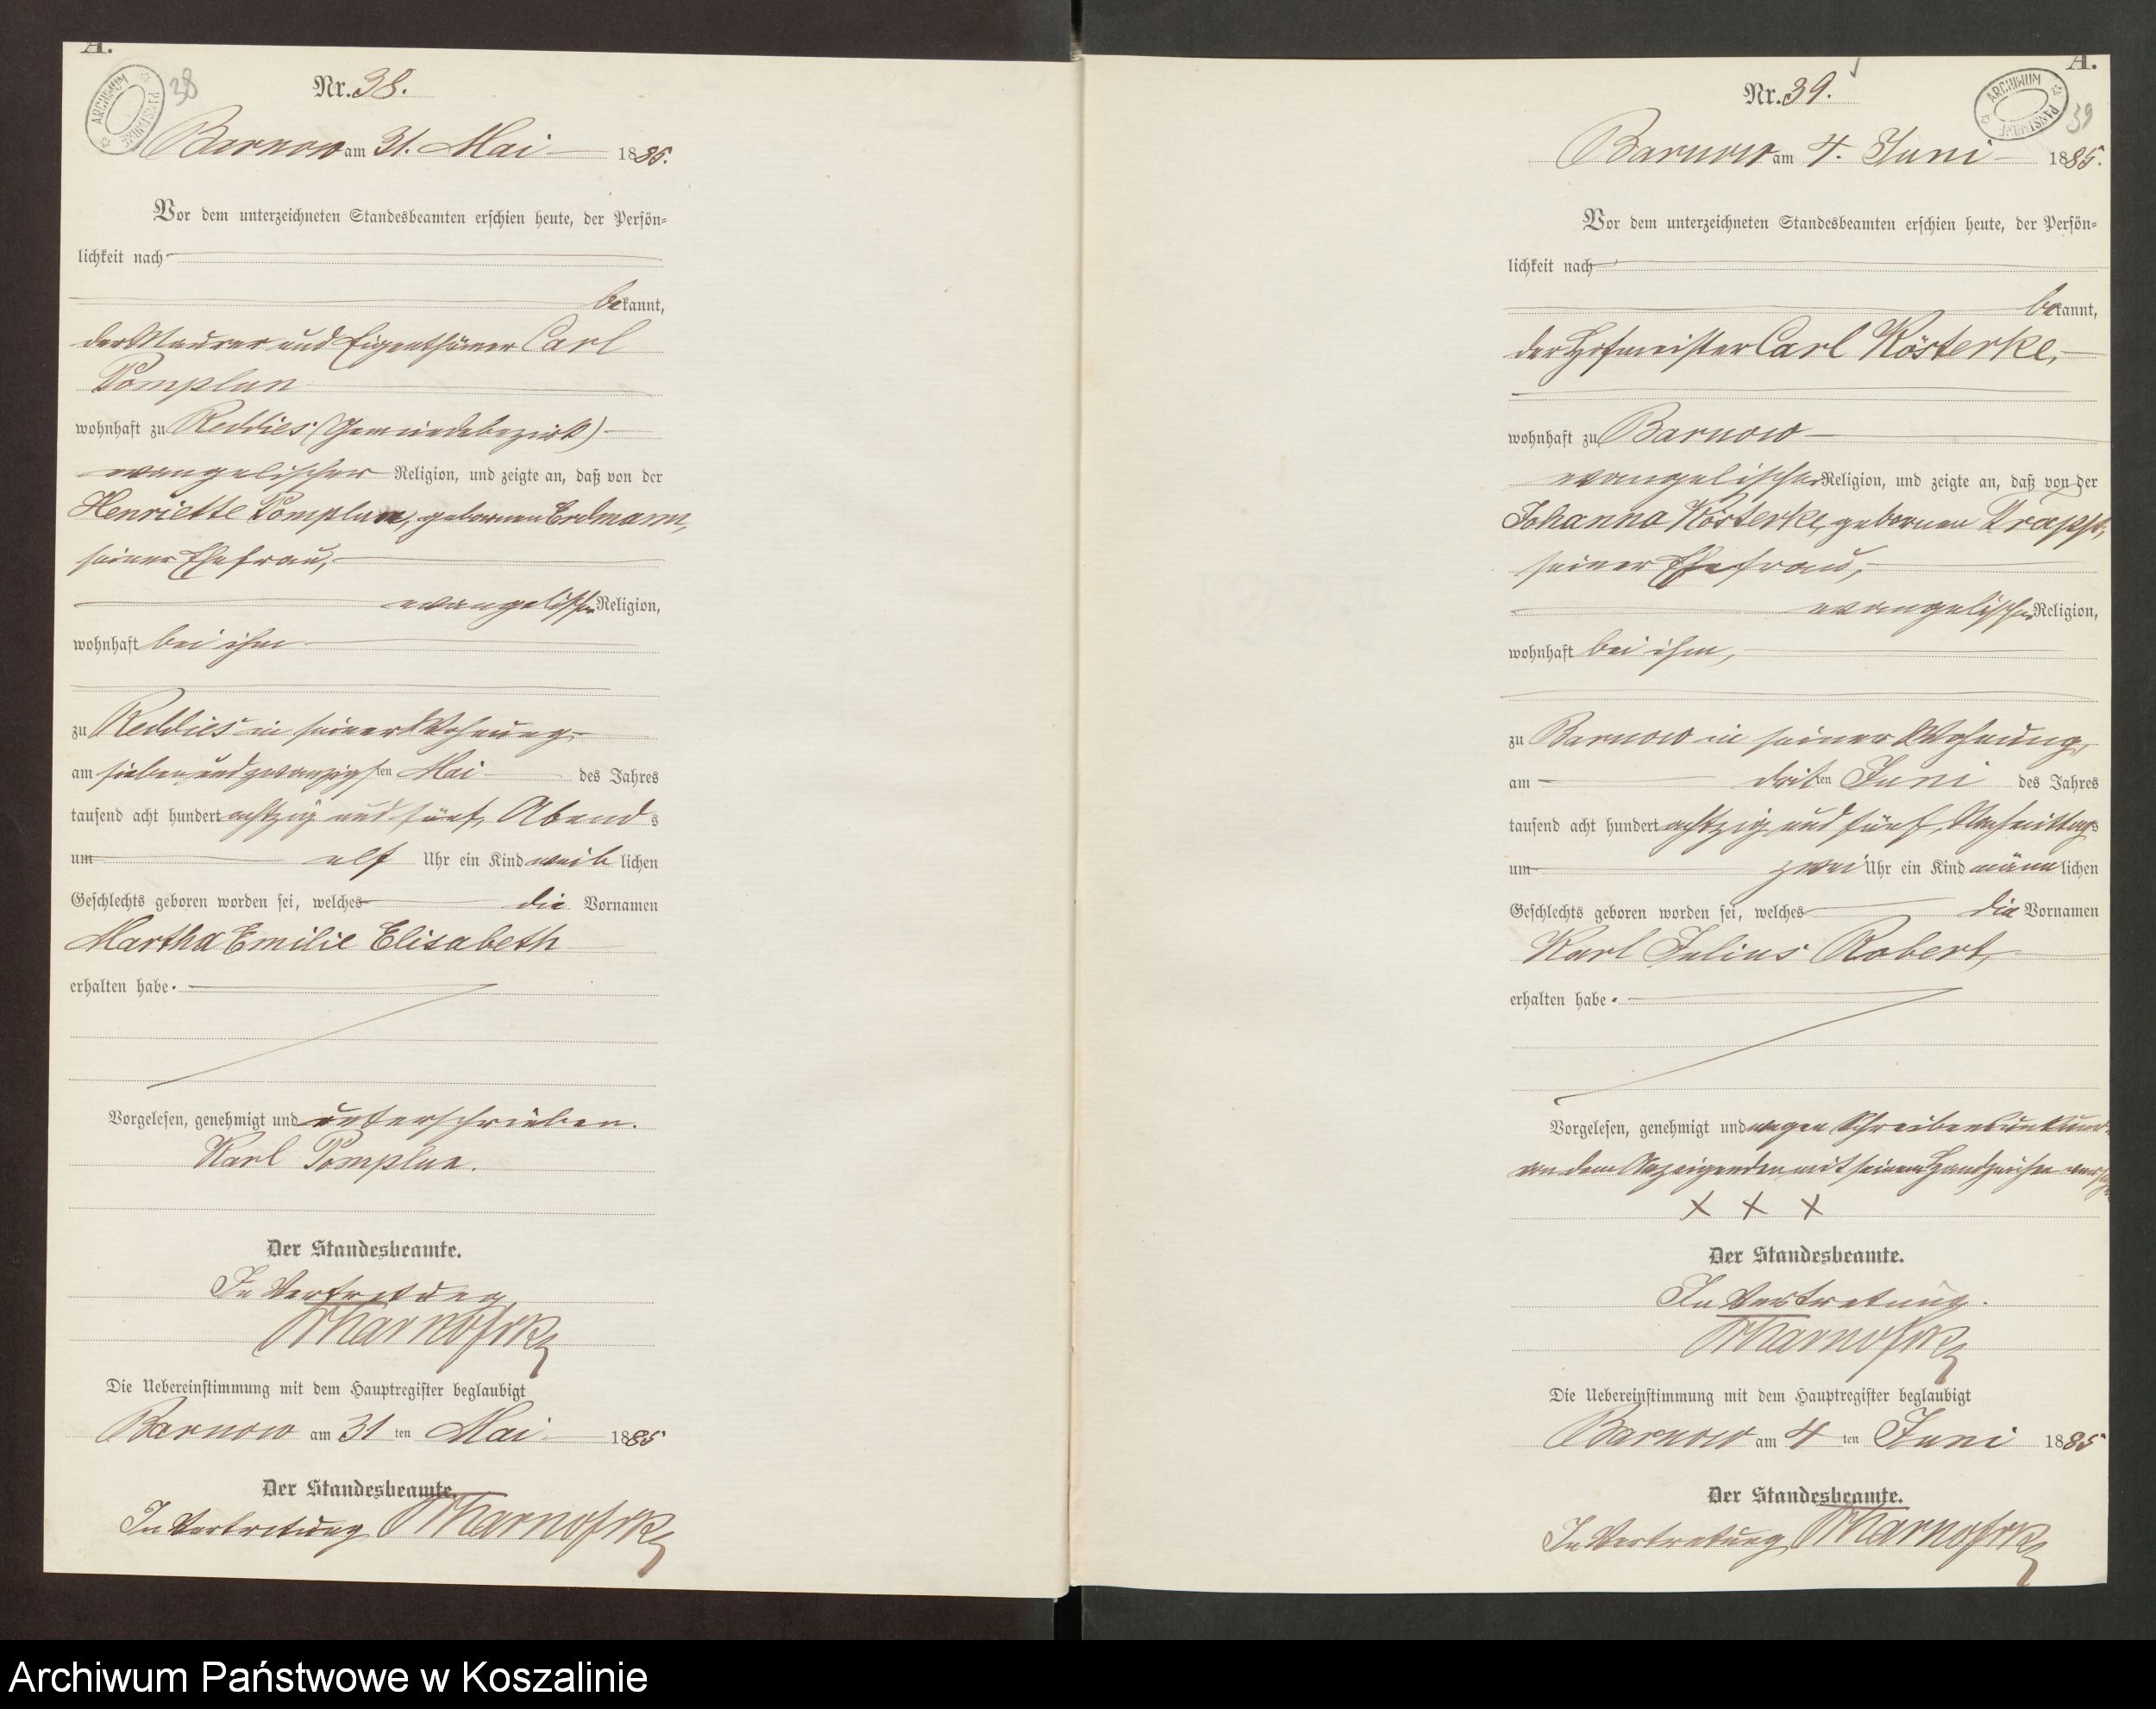 A.
ARCHIWUM PAŃSTWOWE
38
Nr. 38.
Barnow am 31. Mai 1885.
Vor dem unterzeichneten Standesbeamten erschien heute, der Persön-
lichkeit nach
bekannt,
der Maurer und Eigenthümer Carl
Pomplun
wohnhaft zu Reddies (Gemeindebezirk)
evangelischer Religion, und zeigte an, daß von der
Henriette Pomplun, gebornen Erdmann,
seiner Ehefrau,
evangelischer Religion,
wohnhaft bei ihm
zu Reddies in seiner Wohnung
am sieben und zwanzigsten Mai des Jahres
tausend acht hundert achtzig und fünf, Abends
um elf Uhr ein Kind weiblichen
Geschlechts geboren worden sei, welches die Vornamen
Martha Emilie Elisabeth
erhalten habe.
Vorgelesen, genehmigt und unterschrieben.
Karl Pomplun.
Der Standesbeamte.
In Vertretung
Die Uebereinstimmung mit dem Hauptregister beglaubigt
Barnow am 31 ten Mai 1885
Der Standesbeamte.
In Vertretung
A.
ARCHIWUM PAŃSTWOWE
39
Nr. 39.
Barnow am 4. Juni 1885.
Vor dem unterzeichneten Standesbeamten erschien heute, der Persön-
lichkeit nach
bekannt,
der Hofmeister Carl Kösterke,
wohnhaft zu Barnow
evangelischer Religion, und zeigte an, daß von der
Johanna Kösterke, gebornen
seiner Ehefrau,
evangelischer Religion,
wohnhaft bei ihm,
zu Barnow in seiner Wohnung,
am dritten Juni des Jahres
tausend acht hundert achtzig und fünf, Nachmittags
um zwei Uhr ein Kind männlichen
Geschlechts geboren worden sei, welches die Vornamen
Karl Julius Robert,
erhalten habe.
Vorgelesen, genehmigt und wegen Schreibensunkunde
von dem Anzeigenden mit seinem Handzeichen versehen
X X X
Der Standesbeamte.
In Vertretung.
Die Uebereinstimmung mit dem Hauptregister beglaubigt
Barnow am 4 ten Juni 1885
Der Standesbeamte.
In Vertretung
Archiwum Państwowe w Koszalinie